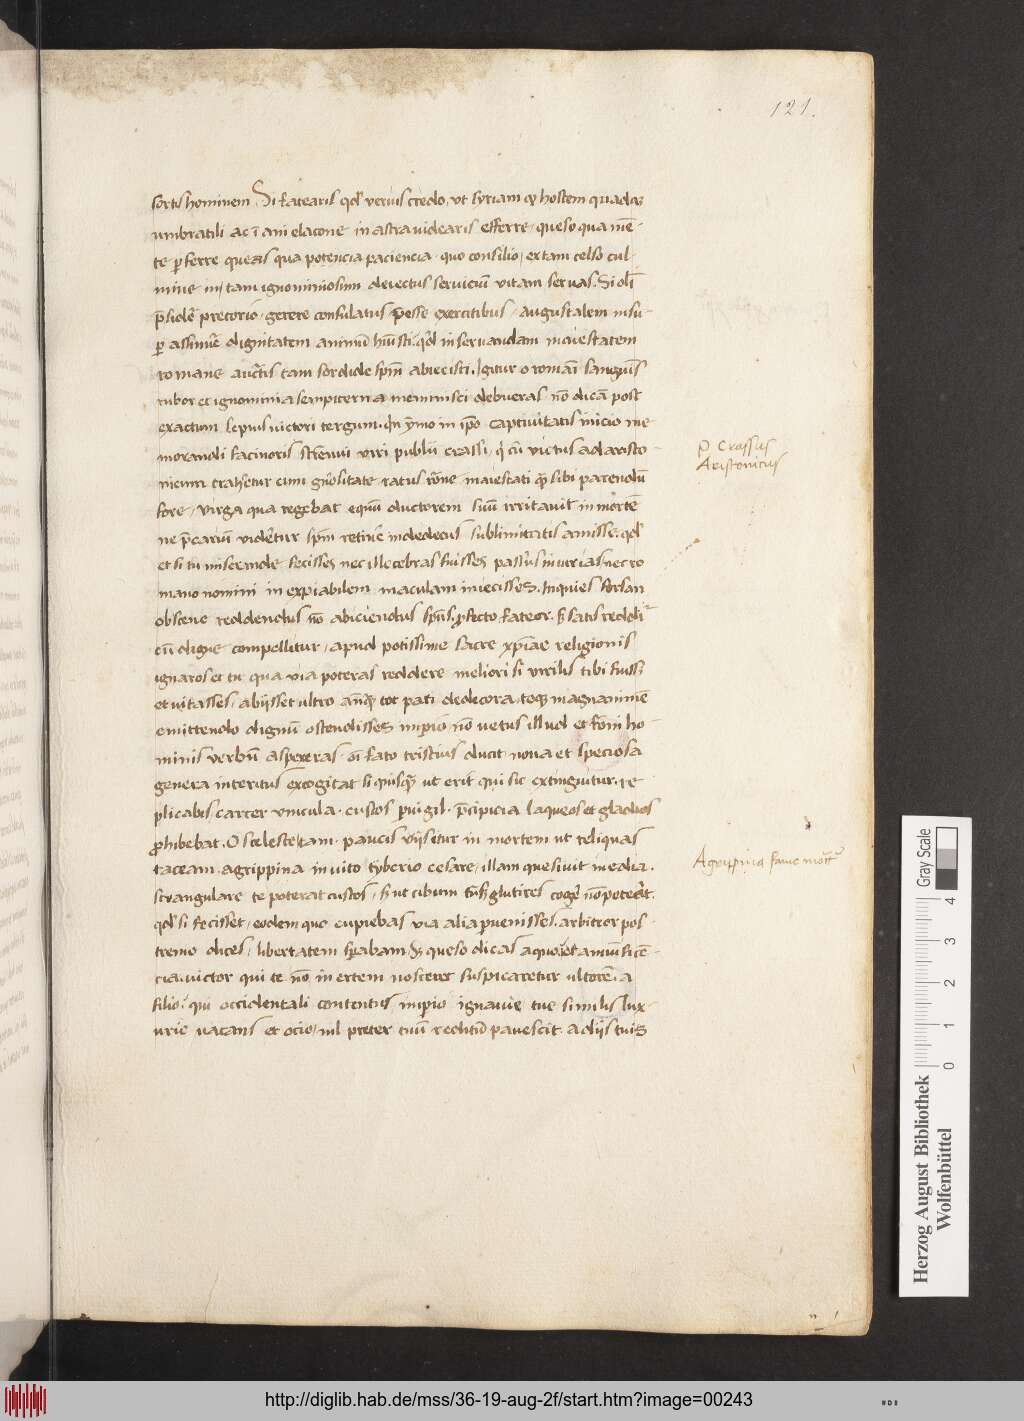 121.
sortis hominem. Si fatearis qđ verius credo, ut syriam & hostem quadā
umbratili ac īani elacone in astra videaris efferre. queso qua mē-
te ꝑferre queas qua potencia paciencia. quo consilio, ex tam celso cul-
mine in tam ignominiosum deiectus servicium vitam servas. Si olī
p̄sidēr pretorio. gerere consulatus p̄esse exercitibus, augustalem insu-
ꝑ assumēr dignitatem animū hūisti. qđ in servandam maiestatem
romane
tam sordide spm̄ abiecisti. Igitur o romāī sangūīs
rubor et ignominia sempiterna meminisci debueras nō dicā post
exactum sepius victori tergum. qn ymo in ip̄o captivitatis inicio me
morandi facinoris strenui viri publii crassi, q cū victus ad aristo-
nicum traheretur cum gn̄ositate ratus rōne maiestati q̄ sibi parendū
fore, virga qua regebat equū ductorem suū irritavit in mortē
ne p̄cariū viderētur spm̄ retinē in dedecus sublimitatis amisse. qđ
et si tu miserande fecisses nec illecebras fuisses passus iniurias, nec ro
mano nomini inexpiabilem maculam iniecisses. Inquies forsan
obscene reddendus nō abiciendus spūs. ꝓfecto fateor. s satis reddī
cū digne compellitur, apud potissime sacre xp̄iae religionis
ignaros et tu qua via poteras reddere meliori si virilis tibi fuisset
et vitasses, abiisset ultro
tot pati dedecora, teq; magnanimē
emittendo dignū ostendisses impio nō vetus illud et
ho-
minis verbū aspexeras. oī fato tristius ducit nova et speciosa
genera interitus excogitat si quisq̄ ut erit qui sic extinguitur. re-
plicabis, carcer vincula. custos pvigil. p̄cipicia laqueos et gladios
ꝓhibebat. O sceleste, tam paucis viis itur in mortem ut reliquas
taceam. agrippina invito tyberio cesare, illam quesivit inedia.
strangulare te poterat custos, s ut cibum
glutires cogē nō poterat.
qđ si fecisset, eodem quo cupiebas via alia pvenisses. arbitror pos-
tremo dices, libertatem spabam. Si queso dicas a quo,
cia. victor qui te nō inertem nosceret suspicaretur ultorē. a
filio? qui occidentali contentus impio ignavie tue similis lux-
urie vacans et ocio, nil preter tuū reditū pavescit. a diis tuis
P Crassus
Aristonicus
Agrippina fame mort
Gray Scale
0 1 2 3 4
Herzog August Bibliothek
Wolfenbüttel
http://diglib.hab.de/mss/36-19-aug-2f/start.htm?image=00243